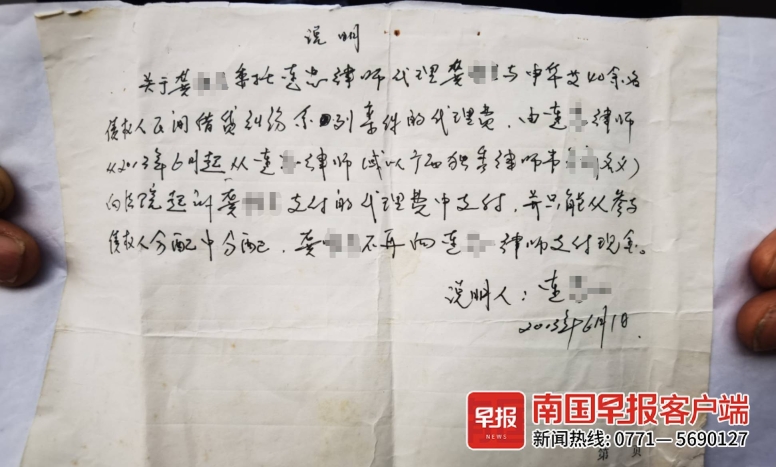 说明
关于龚 委托连忠律师代理龚 与申年艾40余名
债权人民间借贷纠纷系列案件的代理费，由连 律师
从2013年6月起从连 律师(或以广西独秀律师 名义)
向法院起诉龚 支付的代理费中支付，并只能从参与
债权人分配中分配，龚 不再向连 律师支付现金。
说明人：连
2013年6月1日
早报
NEWS
南国早报客户端
新闻热线: 0771—5690127
第 页